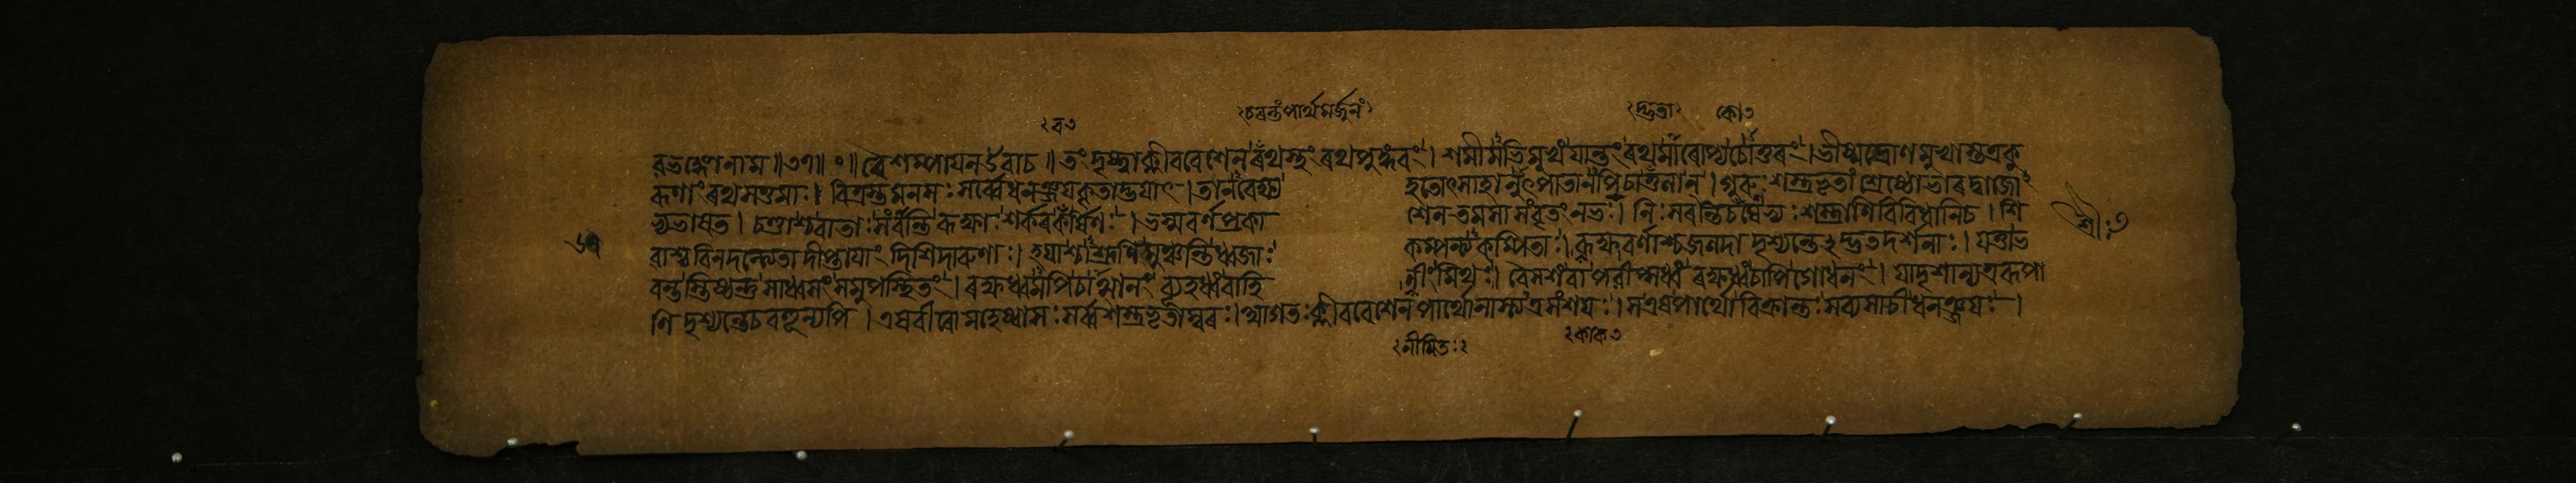 ৰ৩
চৰন্তং পার্থমর্জুনং
দ্ভুতা কো৩
ৰভঙ্গোনাম ॥৩৭॥ ০ ॥ বৈশম্পায়ন উবাচ ॥ তং দৃষ্ট্বা ক্লীববেশেন ৰথস্থং ৰথপুঙ্গবং । শমীমভিমুখং যান্তং ৰথমাৰোপ্য চোত্তৰং । ভীষ্মদ্রোণমুখাস্তত্র কু
ৰূণাং ৰথসত্তমাঃ । বিত্রস্তমনসঃ সর্ব্বে ধনঞ্জয়কৃতাদ্ভয়াৎ । তানবেক্ষ্য হতোৎসাহানুৎপাতানপি চাদ্ভুতান্ । গুৰুঃ শস্ত্রভৃতাং শ্রেষ্ঠো ভাৰদ্বাজো
ভ্যভাষত । চণ্ডাশ্চ বাতাঃ সংবান্তি ৰূক্ষাঃ শর্কৰকর্ষিণঃ । ভস্মবর্ণপ্রকাশেন তমসা সংবৃতং নভঃ । নিঃসৰন্তি চ কোষেভ্যঃ শস্ত্রাণি বিবিধানি চ । শি
বাশ্চ বিনদন্ত্যেতা দীপ্তায়াং দিশি দাৰুণাঃ । হয়াশ্চাশ্রূণি মুঞ্চন্তি ধ্বজাঃ কম্পন্ত্যকম্পিতাঃ । ৰূক্ষবর্ণাশ্চ জলদা দৃশ্যন্তেঽদ্ভুতদর্শনাঃ । যত্তা ভ
বন্তস্তিষ্ঠন্তু সাধ্বসং সমুপস্থিতং । ৰক্ষধ্বমপি চাত্মানং ব্যূহধ্বং বাহিনীং মিথঃ । বৈশসং বা পৰীপ্সধ্বং ৰক্ষধ্বং চাপি গোধনং । যাদৃশান্যত্র ৰূপা
ণি দৃশ্যন্তে চ বহূন্যপি । এষ বীৰো মহেষ্বাসঃ সর্ব্বশস্ত্রভৃতাম্বৰঃ । আগতঃ ক্লীববেশেন পার্থো নাস্ত্যত্র সংশয়ঃ । স এষ পার্থো বিক্রান্তঃ সব্যসাচী ধনঞ্জয়ঃ ।